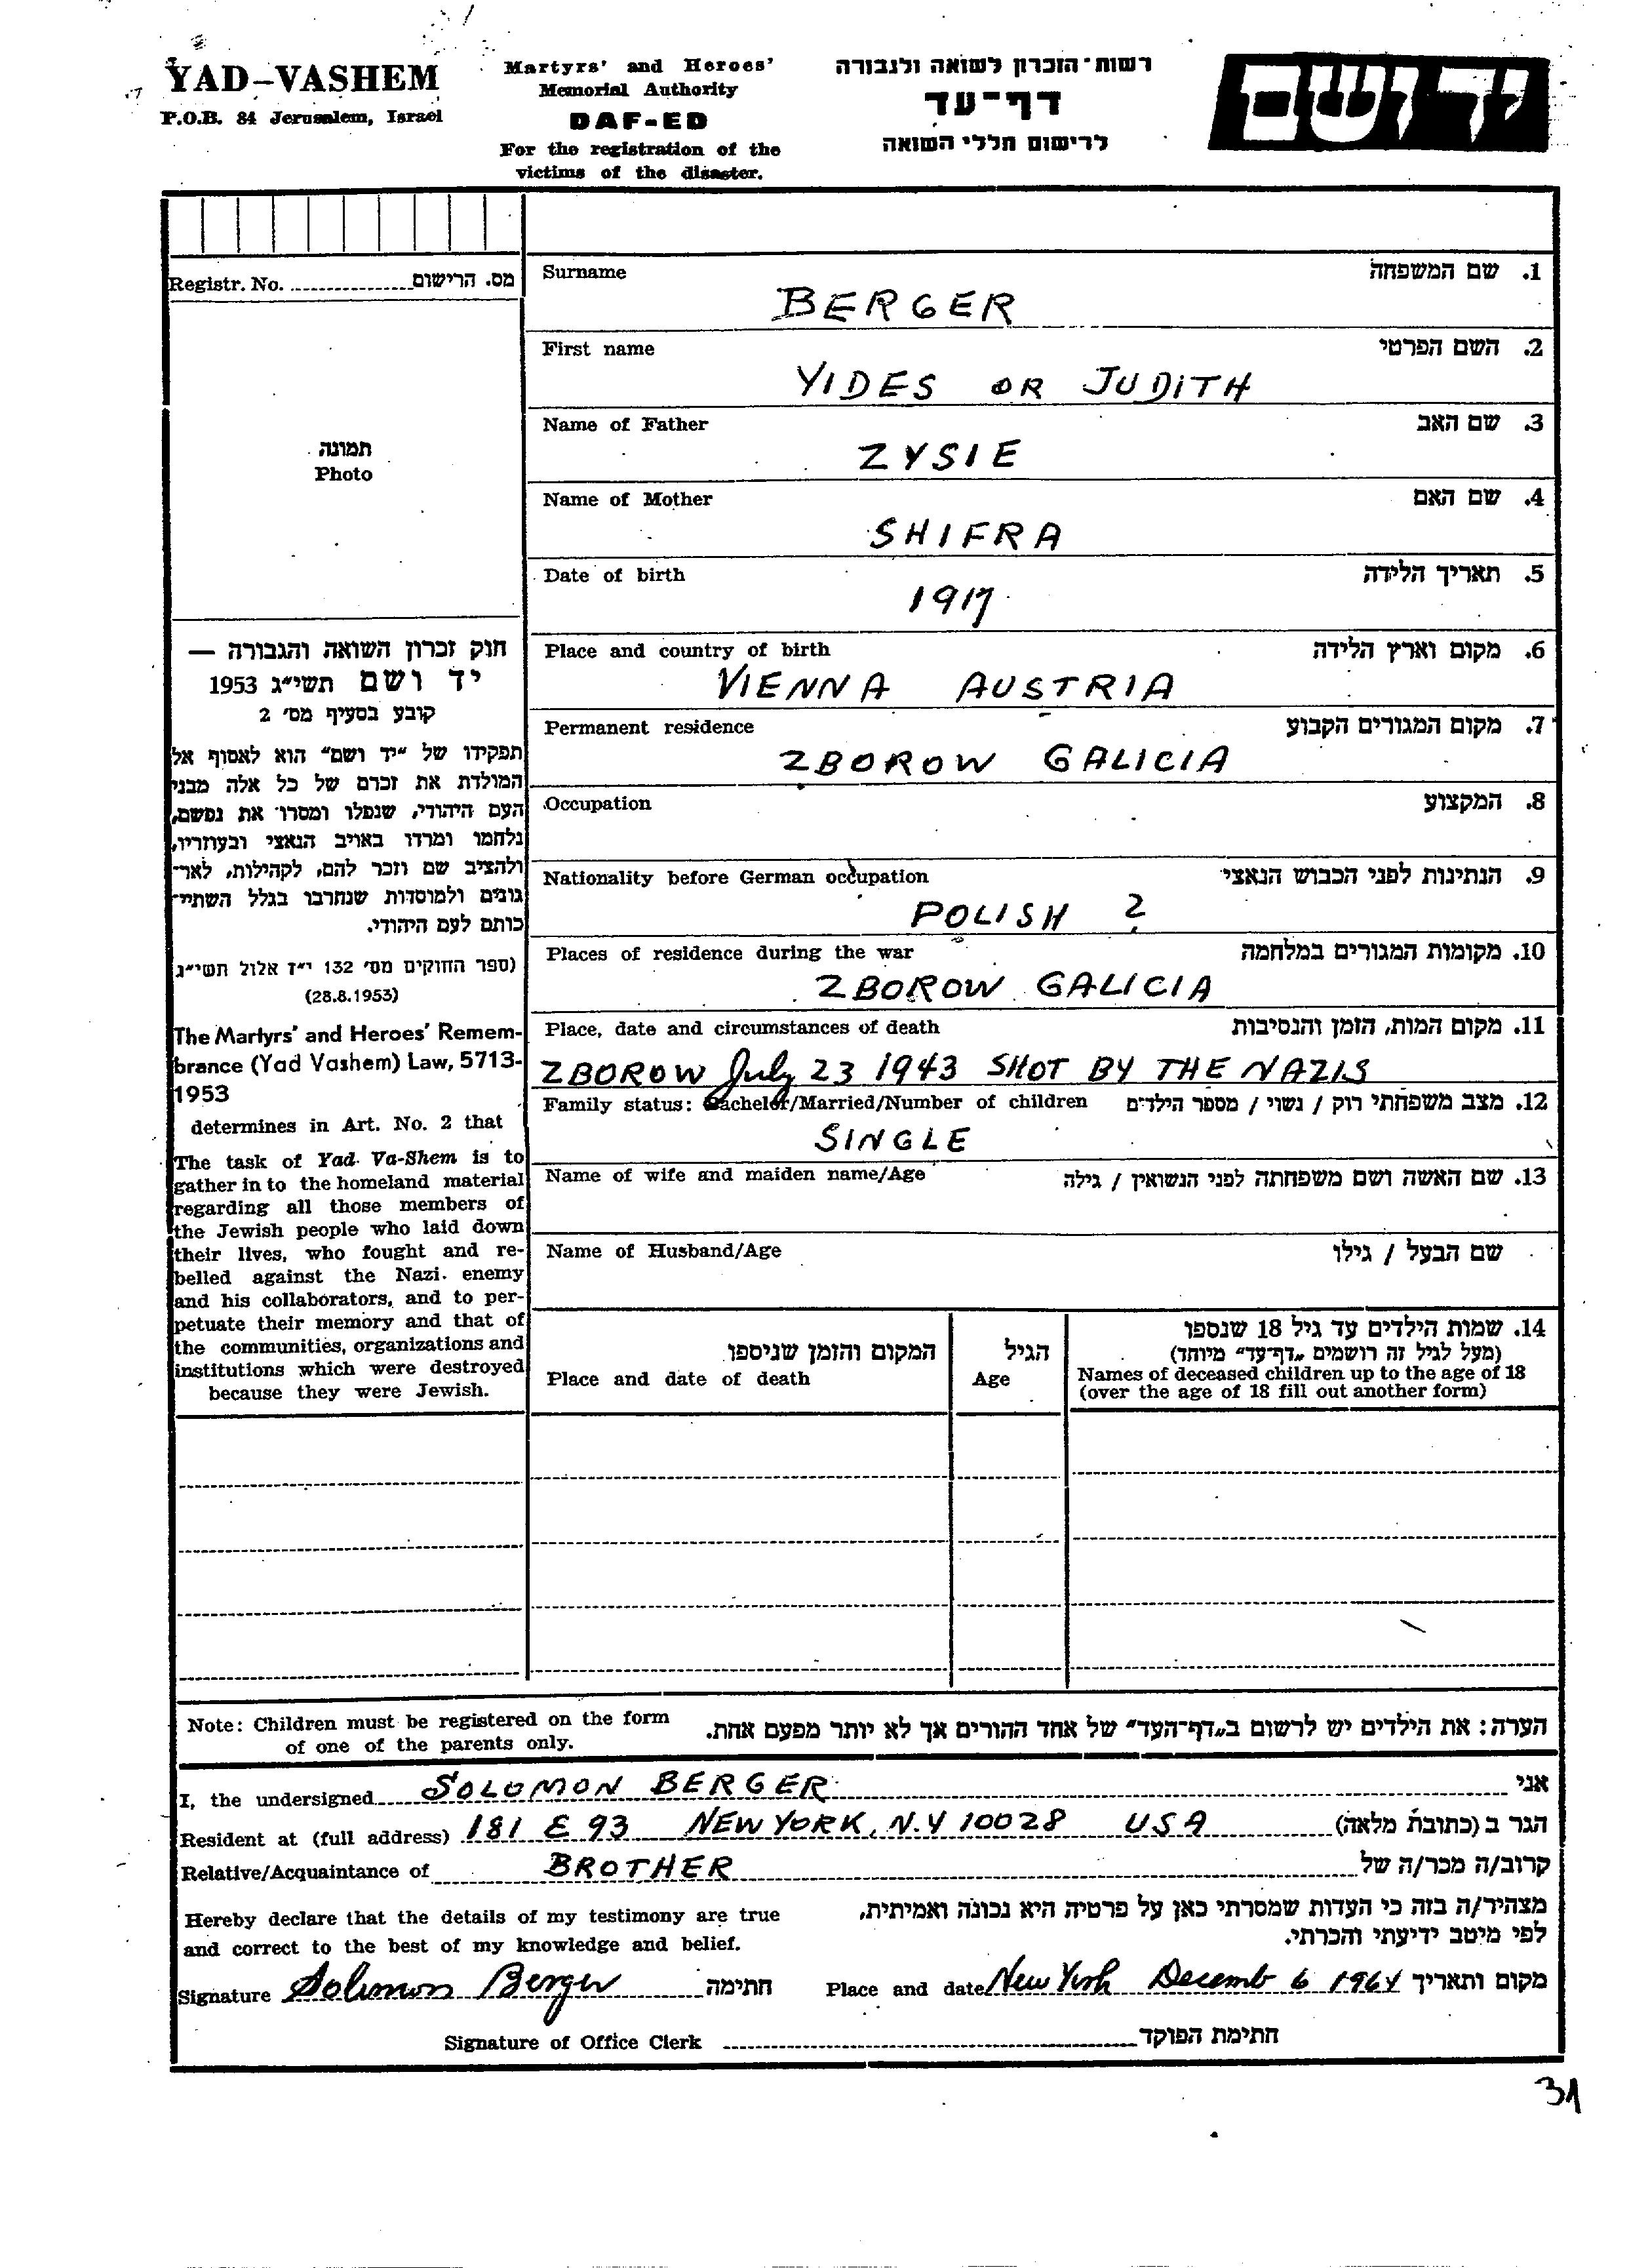 YAD-VASHEM
P.O.B. 84 Jerusalem, Israel
Martyrs' and Heroes'
Memorial Authority
DAF-ED
For the registration of the
victims of the disaster.
רשות-הזכרון לשואה ולגבורה
דף-עד
לרישום חללי השואה
יד ושם
Registr. No. מס. הרישום
תמונה
Photo
חוק זכרון השואה והגבורה —
יד ושם תשי"ג 1953
קובע בסעיף מס' 2
תפקידו של "יד ושם" הוא לאסוף אל
המולדת את זכרם של כל אלה מבני
העם היהודי, שנפלו ומסרו את נפשם,
נלחמו ומרדו באויב הנאצי ובעוזריו,
ולהציב שם וזכר להם, לקהילות, לאר-
גונים ולמוסדות שנחרבו בגלל השתיי-
כותם לעם היהודי.
(ספר החוקים מס' 132 י"ז אלול תשי"ג
(28.8.1953)
The Martyrs' and Heroes' Remem-
brance (Yad Vashem) Law, 5713-
1953
determines in Art. No. 2 that
The task of Yad Va-Shem is to
gather in to the homeland material
regarding all those members of
the Jewish people who laid down
their lives, who fought and re-
belled against the Nazi enemy
and his collaborators, and to per-
petuate their memory and that of
the communities, organizations and
institutions which were destroyed
because they were Jewish.
Surname 1. שם המשפחה
BERGER
First name 2. השם הפרטי
YIDES OR JUDITH
Name of Father 3. שם האב
ZYSIE
Name of Mother 4. שם האם
SHIFRA
Date of birth 5. תאריך הלידה
1917
Place and country of birth 6. מקום וארץ הלידה
VIENNA AUSTRIA
Permanent residence 7. מקום המגורים הקבוע
ZBOROW GALICIA
Occupation 8. המקצוע
Nationality before German occupation 9. הנתינות לפני הכבוש הנאצי
POLISH ?
Places of residence during the war 10. מקומות המגורים במלחמה
ZBOROW GALICIA
Place, date and circumstances of death 11. מקום המות, הזמן והנסיבות
ZBOROW July 23 1943 SHOT BY THE NAZIS
Family status: Bachelor/Married/Number of children 12. מצב משפחתי רוק / נשוי / מספר הילדים
SINGLE
Name of wife and maiden name/Age 13. שם האשה ושם משפחתה לפני הנשואין / גילה
Name of Husband/Age שם הבעל / גילו
המקום והזמן שניספו
Place and date of death
הגיל
Age
14. שמות הילדים עד גיל 18 שנספו
(מעל לגיל זה רושמים "דף-עד" מיוחד)
Names of deceased children up to the age of 18
(over the age of 18 fill out another form)
Note: Children must be registered on the form
of one of the parents only.
הערה: את הילדים יש לרשום ב"דף-העד" של אחד ההורים אך לא יותר מפעם אחת.
I, the undersigned SOLOMON BERGER אני
Resident at (full address) 181 E 93 NEW YORK, N.Y 10028 USA הגר ב (כתובת מלאה)
Relative/Acquaintance of BROTHER קרוב/ה מכר/ה של
Hereby declare that the details of my testimony are true
and correct to the best of my knowledge and belief.
מצהיר/ה בזה כי העדות שמסרתי כאן על פרטיה היא נכונה ואמיתית,
לפי מיטב ידיעתי והכרתי.
Signature Solomon Berger חתימה Place and date New York Decemb 6 1964 מקום ותאריך
Signature of Office Clerk חתימת הפוקד
31